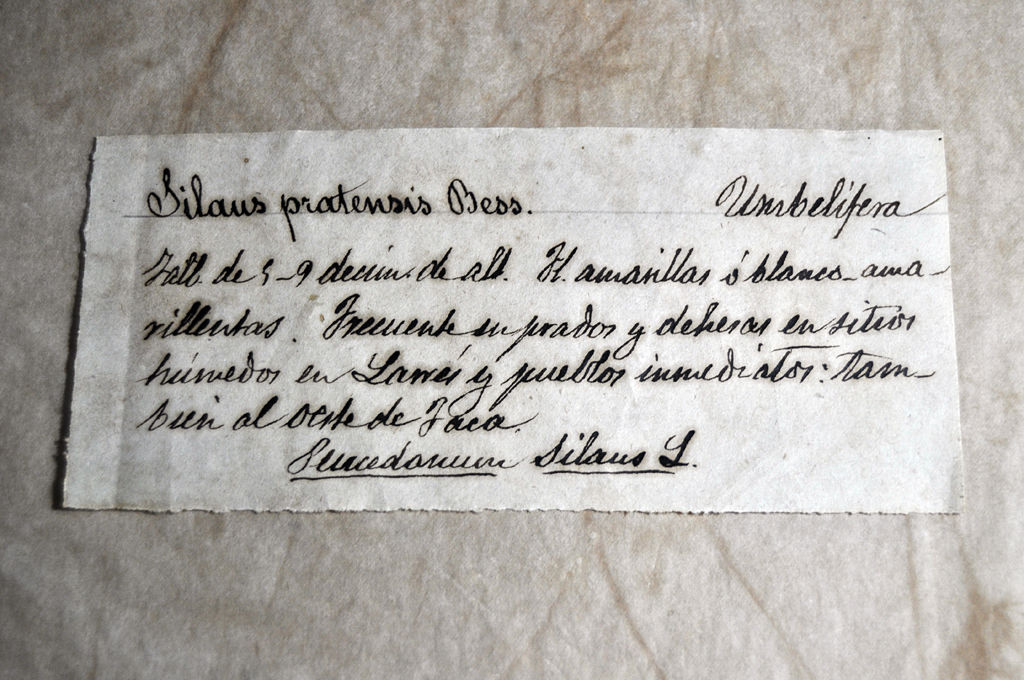 Silaus pratensis Bess. Umbelífera
Tall. de 5-9 decim. de alt. Fl. amarillas ó blanco-ama-
rillentas. Frecuente en prados y dehesas en sitios
húmedos en Larrés y pueblos inmediatos: tam-
bien al oeste de Jaca.
Peucedanum Silaus L.